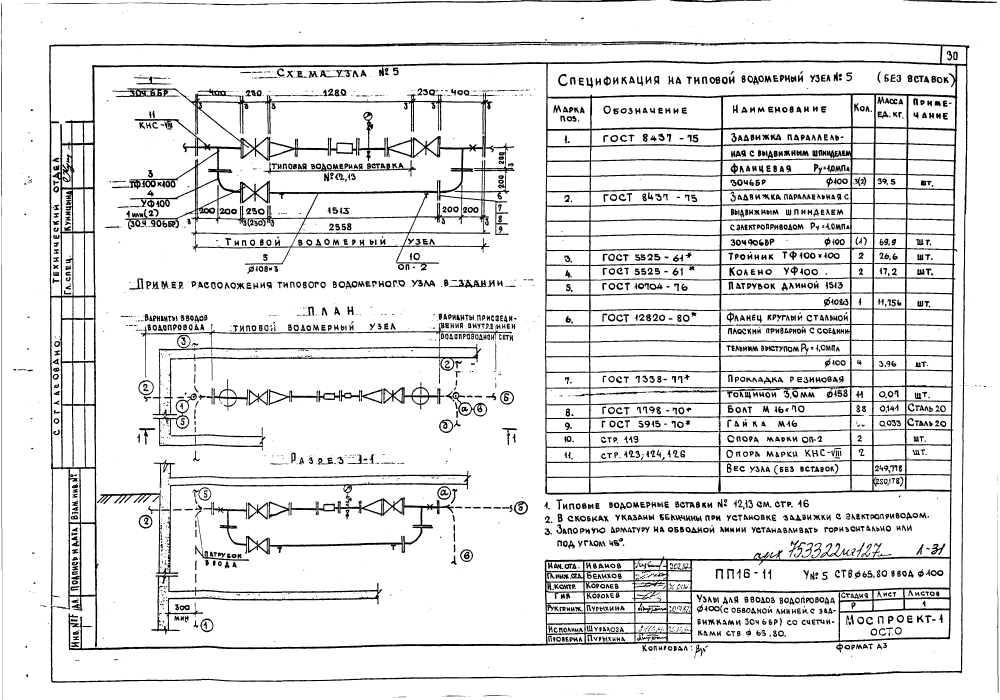 30
Схема узла №5
1
30ч6БР
400 230 1280 230 400
11
КНС-VIII
3
ТФ100×100
4
УФ100
1 или (2)
(30ч906БР)
Типовая водомерная вставка
№12,13
200
200
200 200 250 3(250) 1513 200 200
2558
6
7
8
9
Типовой водомерный узел
5
Ø108×3
10
ОП-2
Пример расположения типового водомерного узла в здании
План
Варианты вводов
водопровода
Типовой водомерный узел
Варианты присоеди-
нения внутренней
водопроводной сети
3
2
1
5
2
а
б
в
1
1
Разрез 1-1
5
2
а
б
в
Патрубок
ввода
300
мин
1
Спецификация на типовой водомерный узел №5 (без вставок)
Марка поз. Обозначение Наименование Кол. Масса ед. кг. Примечание
1. ГОСТ 8437-75 Задвижка параллель-
ная с выдвижным шпинделем
фланцевая Ру=1,0мпа
30ч6БР Ø100 3(2) 39,5 шт.
2. ГОСТ 8437-75 Задвижка параллельная с
выдвижным шпинделем
с электроприводом Ру=1,0мпа
30ч906БР Ø100 (1) 69,9 шт.
3. ГОСТ 5525-61* Тройник ТФ100×100 2 26,6 шт.
4. ГОСТ 5525-61* Колено УФ100. 2 17,2 шт.
5. ГОСТ 10704-76 Патрубок длиной 1513
Ø108×3 1 11,756 шт.
6. ГОСТ 12820-80* Фланец круглый стальной
плоский приварной с соедини
тельним выступом Ру=1,0мпа
Ø100 4 3,96 шт.
7. ГОСТ 7338-77* Прокладка резиновая
толщиной 3,0мм Ø158 11 0,07 шт.
8. ГОСТ 7798-70* Болт М16×70 88 0,141 Сталь 20
9. ГОСТ 5915-70* Гайка М16 0,033 Сталь 20
10. стр. 119 Опора марки ОП-2 2 шт.
11. стр. 123;124,126 Опора марки КНС-VIII 2 шт.
Вес узла (без вставок) 249,778
(280,178)
1. Типовые водомерные вставки № 12,13 см. стр. 16
2. В скобках указаны величины при установке задвижки с электроприводом.
3. Запорную арматуру на обводной линии устанавливать горизонтально или
под углом 45°.
Л-31
Нач. отд. Иванов
Гл.инж.отд. Белихов
Н.контр. Королев
ГИП Королев
Рук.гр.инж. Пурыхина
Исполнил Шувалова
Проверил Пурыхина
ПП16-11 Уз №5 СТВ Ø65,80 ввод Ø100
Узлы для вводов водопровода
Ø100 (с обводной линией, с зад-
вижками 30ч6БР) со счетчи-
ками СТВ Ø 65, 80.
Стадия Лист Листов
Р 1
Моспроект-1
ОСТО
Копировал:
формат А3
Согласовано:
Технический отдел
Гл. спец. Куницына
Инв. №
Подпись и дата
Взам. инв. №